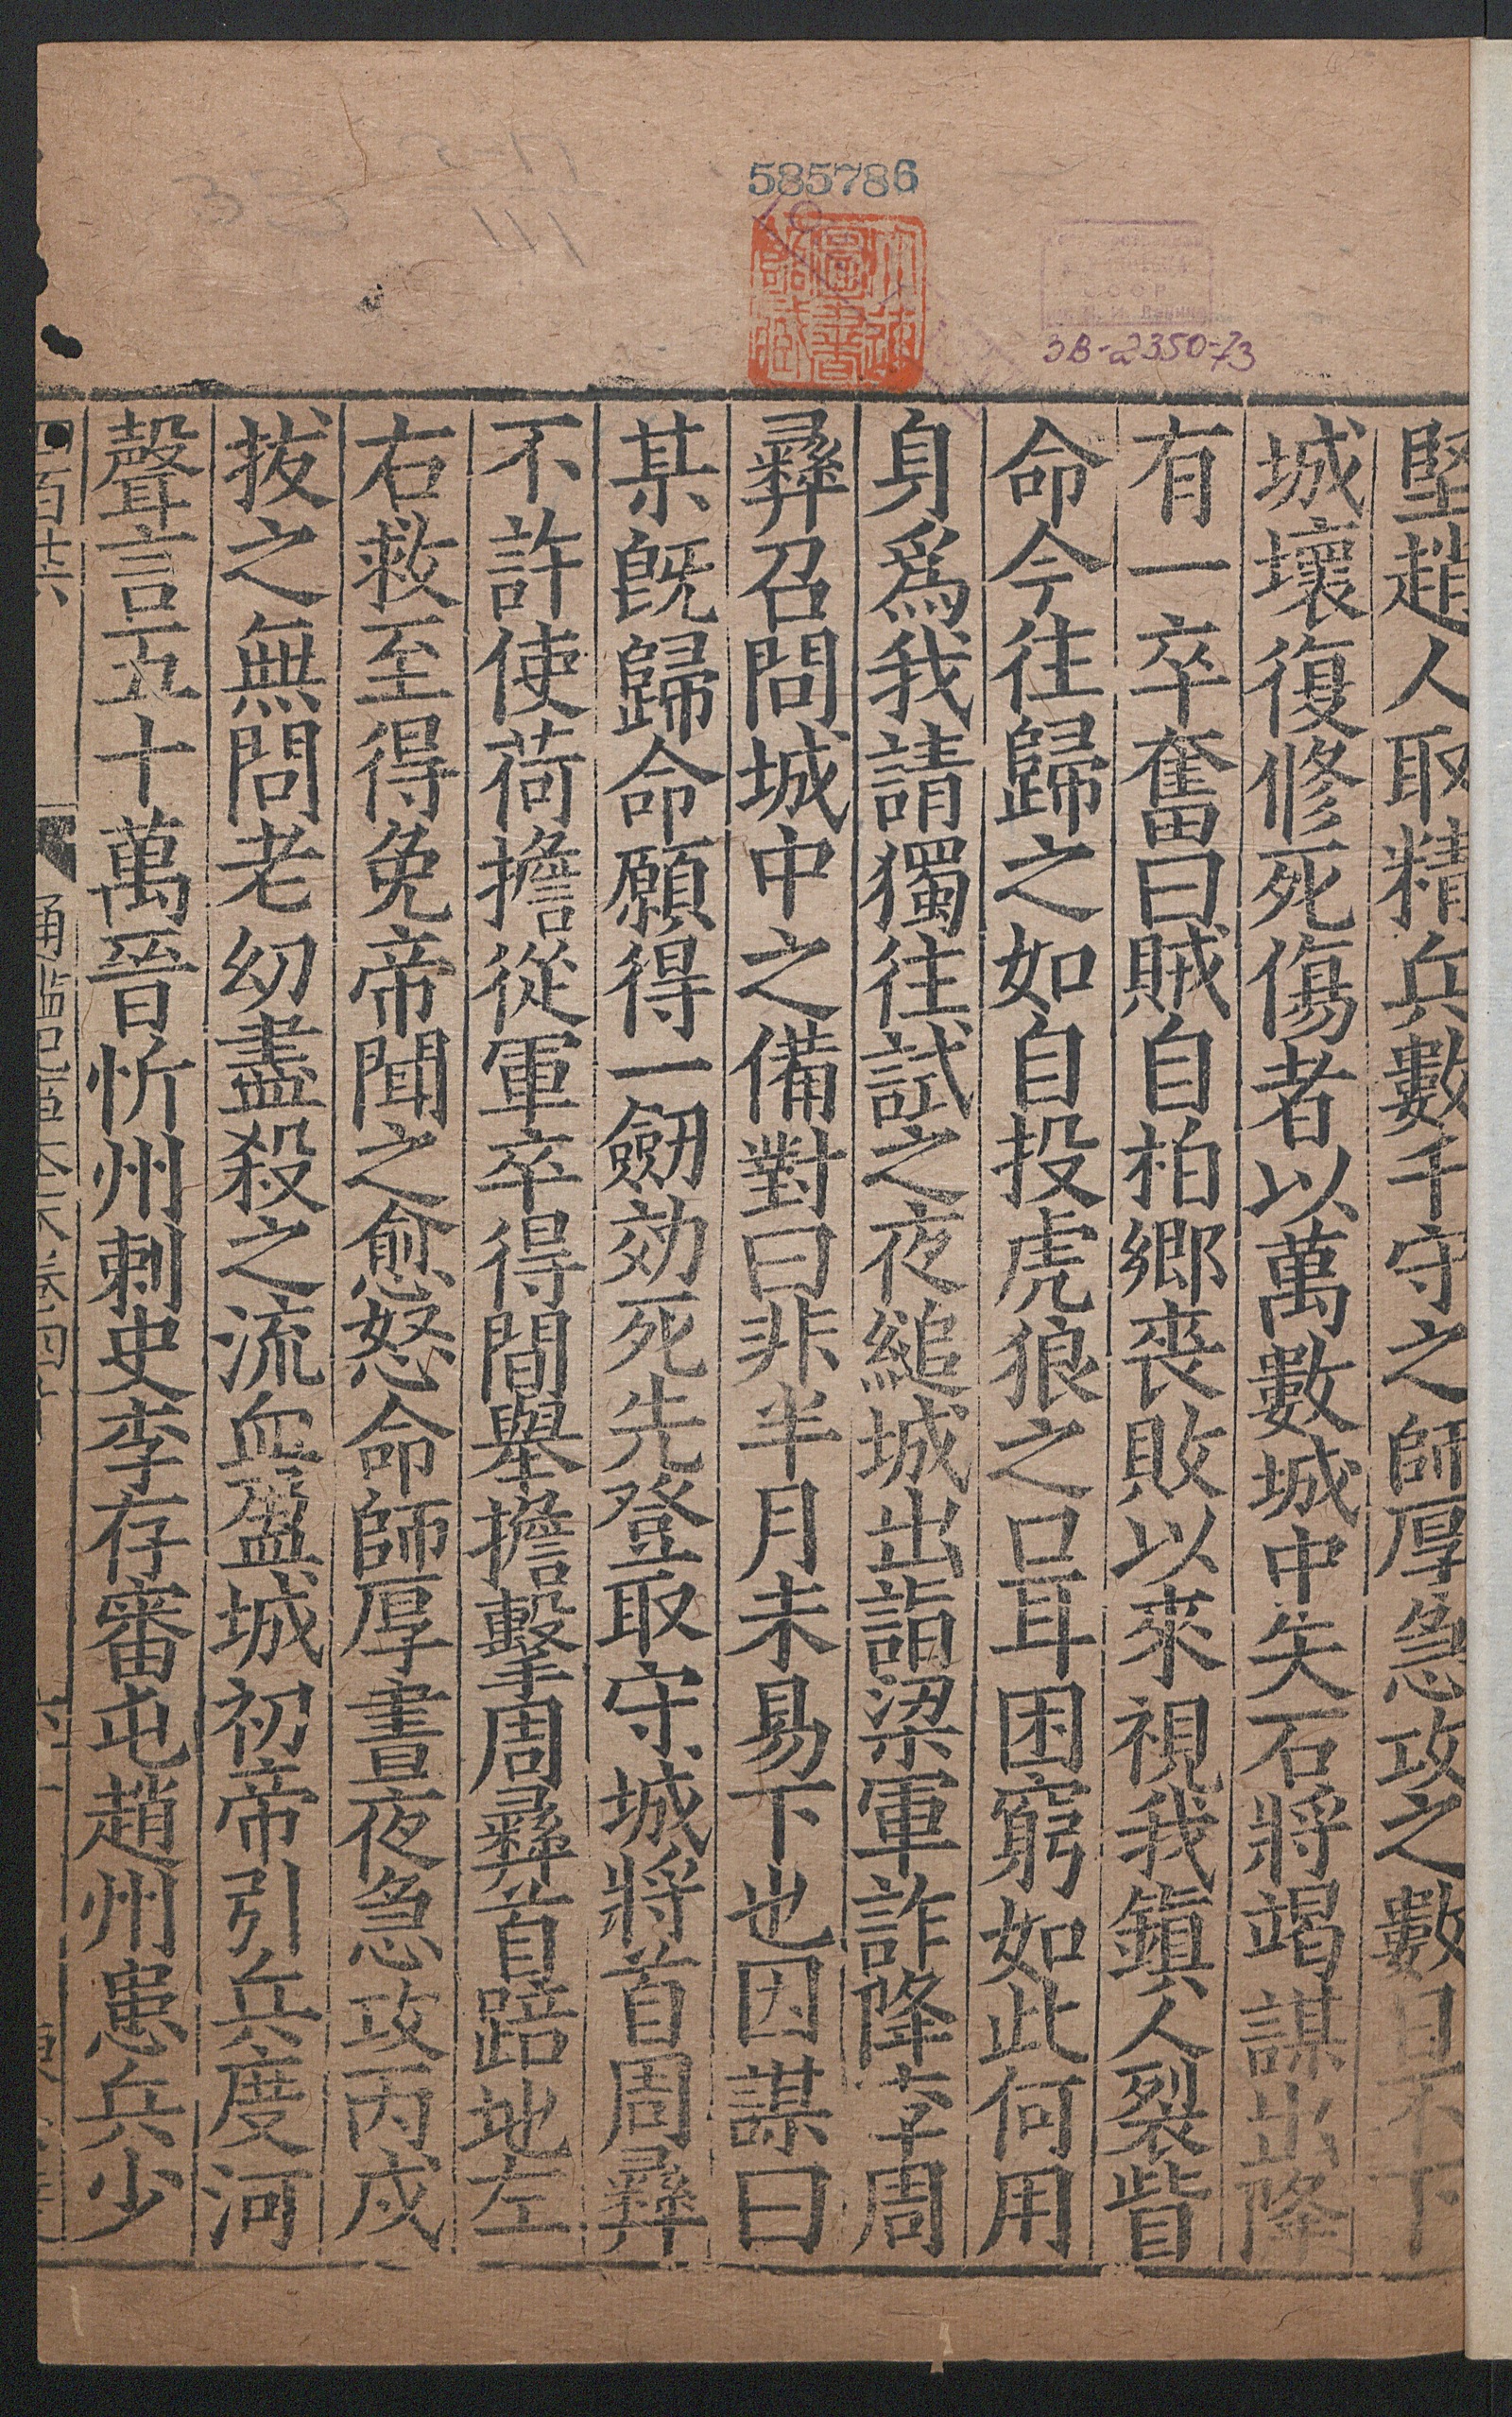 585786
3B-2350-73
堅趙人取精兵數千守之師厚急攻之數日不下
城壞復修死傷者以萬數城中矢石將竭謀出降
有一卒奮曰賊自柏鄉喪敗以來視我鎭人裂眥
命今往歸之如自投虎狼之口耳困窮如此何用
身爲我請獨往試之夜縋城出詣梁軍詐降李周
彝召問城中之備對曰非半月未易下也因謀曰
某旣歸命願得一劒効死先登取守城將首周彝
不許使荷擔從軍卒得間舉擔擊周彝首踣地左
右救至得免帝聞之愈怒命師厚晝夜急攻丙戌
拔之無問老幼盡殺之流血盈城初帝引兵度河
聲言五十萬晉忻州刺史李存審屯趙州患兵少
四百十六
通鑑紀事本末卷四十